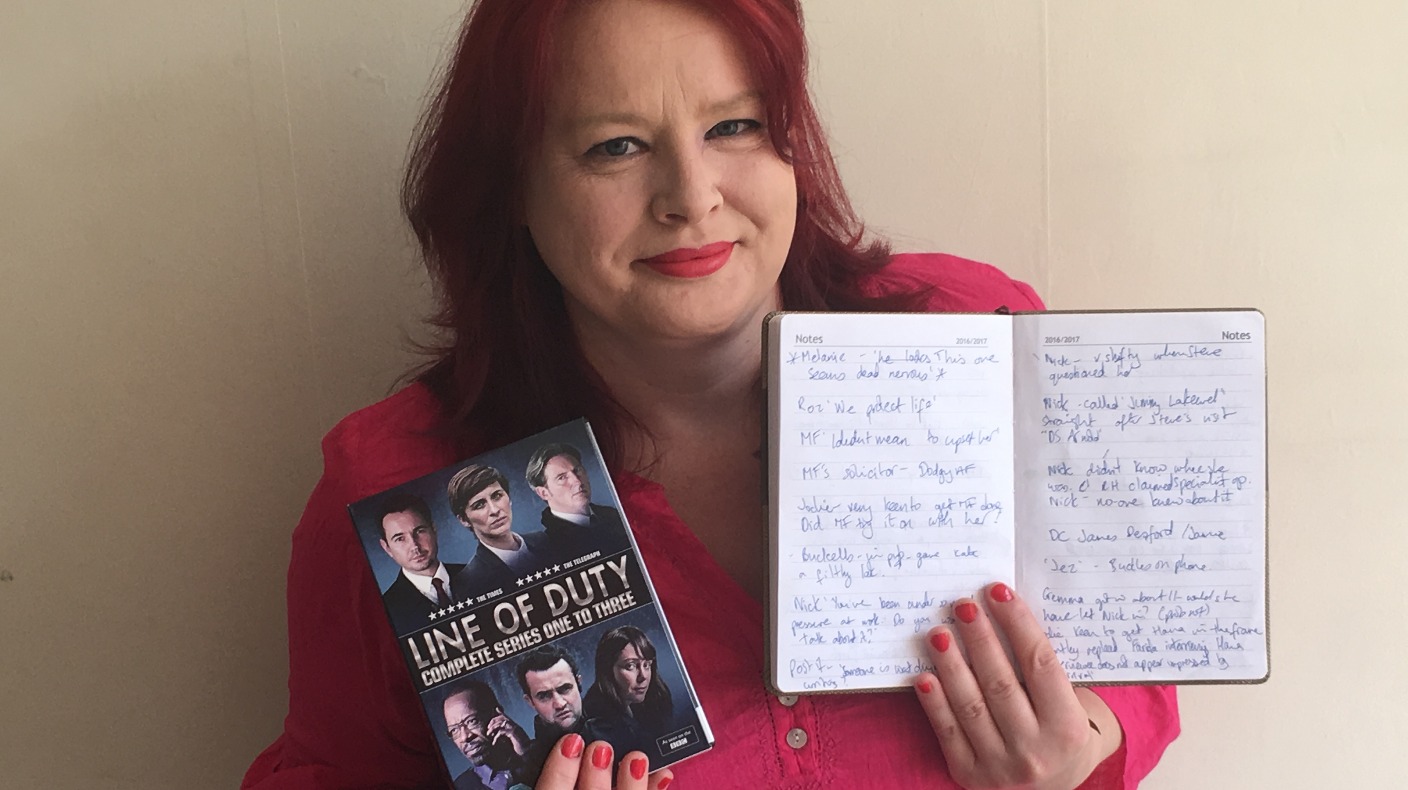 ★★★★★ THE TIMES
★★★★★ THE TELEGRAPH
LINE OF DUTY
COMPLETE SERIES ONE TO THREE
As seen on the
BBC
Notes 2016/2017
* Melanie - 'he looks This one
seems dead nervous' *
Roz 'We protect life'
MF 'I didn't mean to upset her'
MF's solicitor - Dodgy AF
Jodie very keen to get MF
Did MF try it on with her?
- Buckells - gave
a filthy look.
Nick 'You've been under
pressure at work. Do you
talk about it?'
Post 7 - Someone is
2016/2017 Notes
Nick - v shifty when Steve
questioned
Nick - called 'Jimmy Lakewell'
straight after Steve's visit
"DS Arnott"
Nick didn't know where she
was. RH claimed specialist op.
Nick - no-one knew about it
DC James Desford / Jamie
'Jez' - on phone.
about it would she
have let Nick in?
keen to get Hana in the frame
replaced interviewing Hana
does not appear impressed by